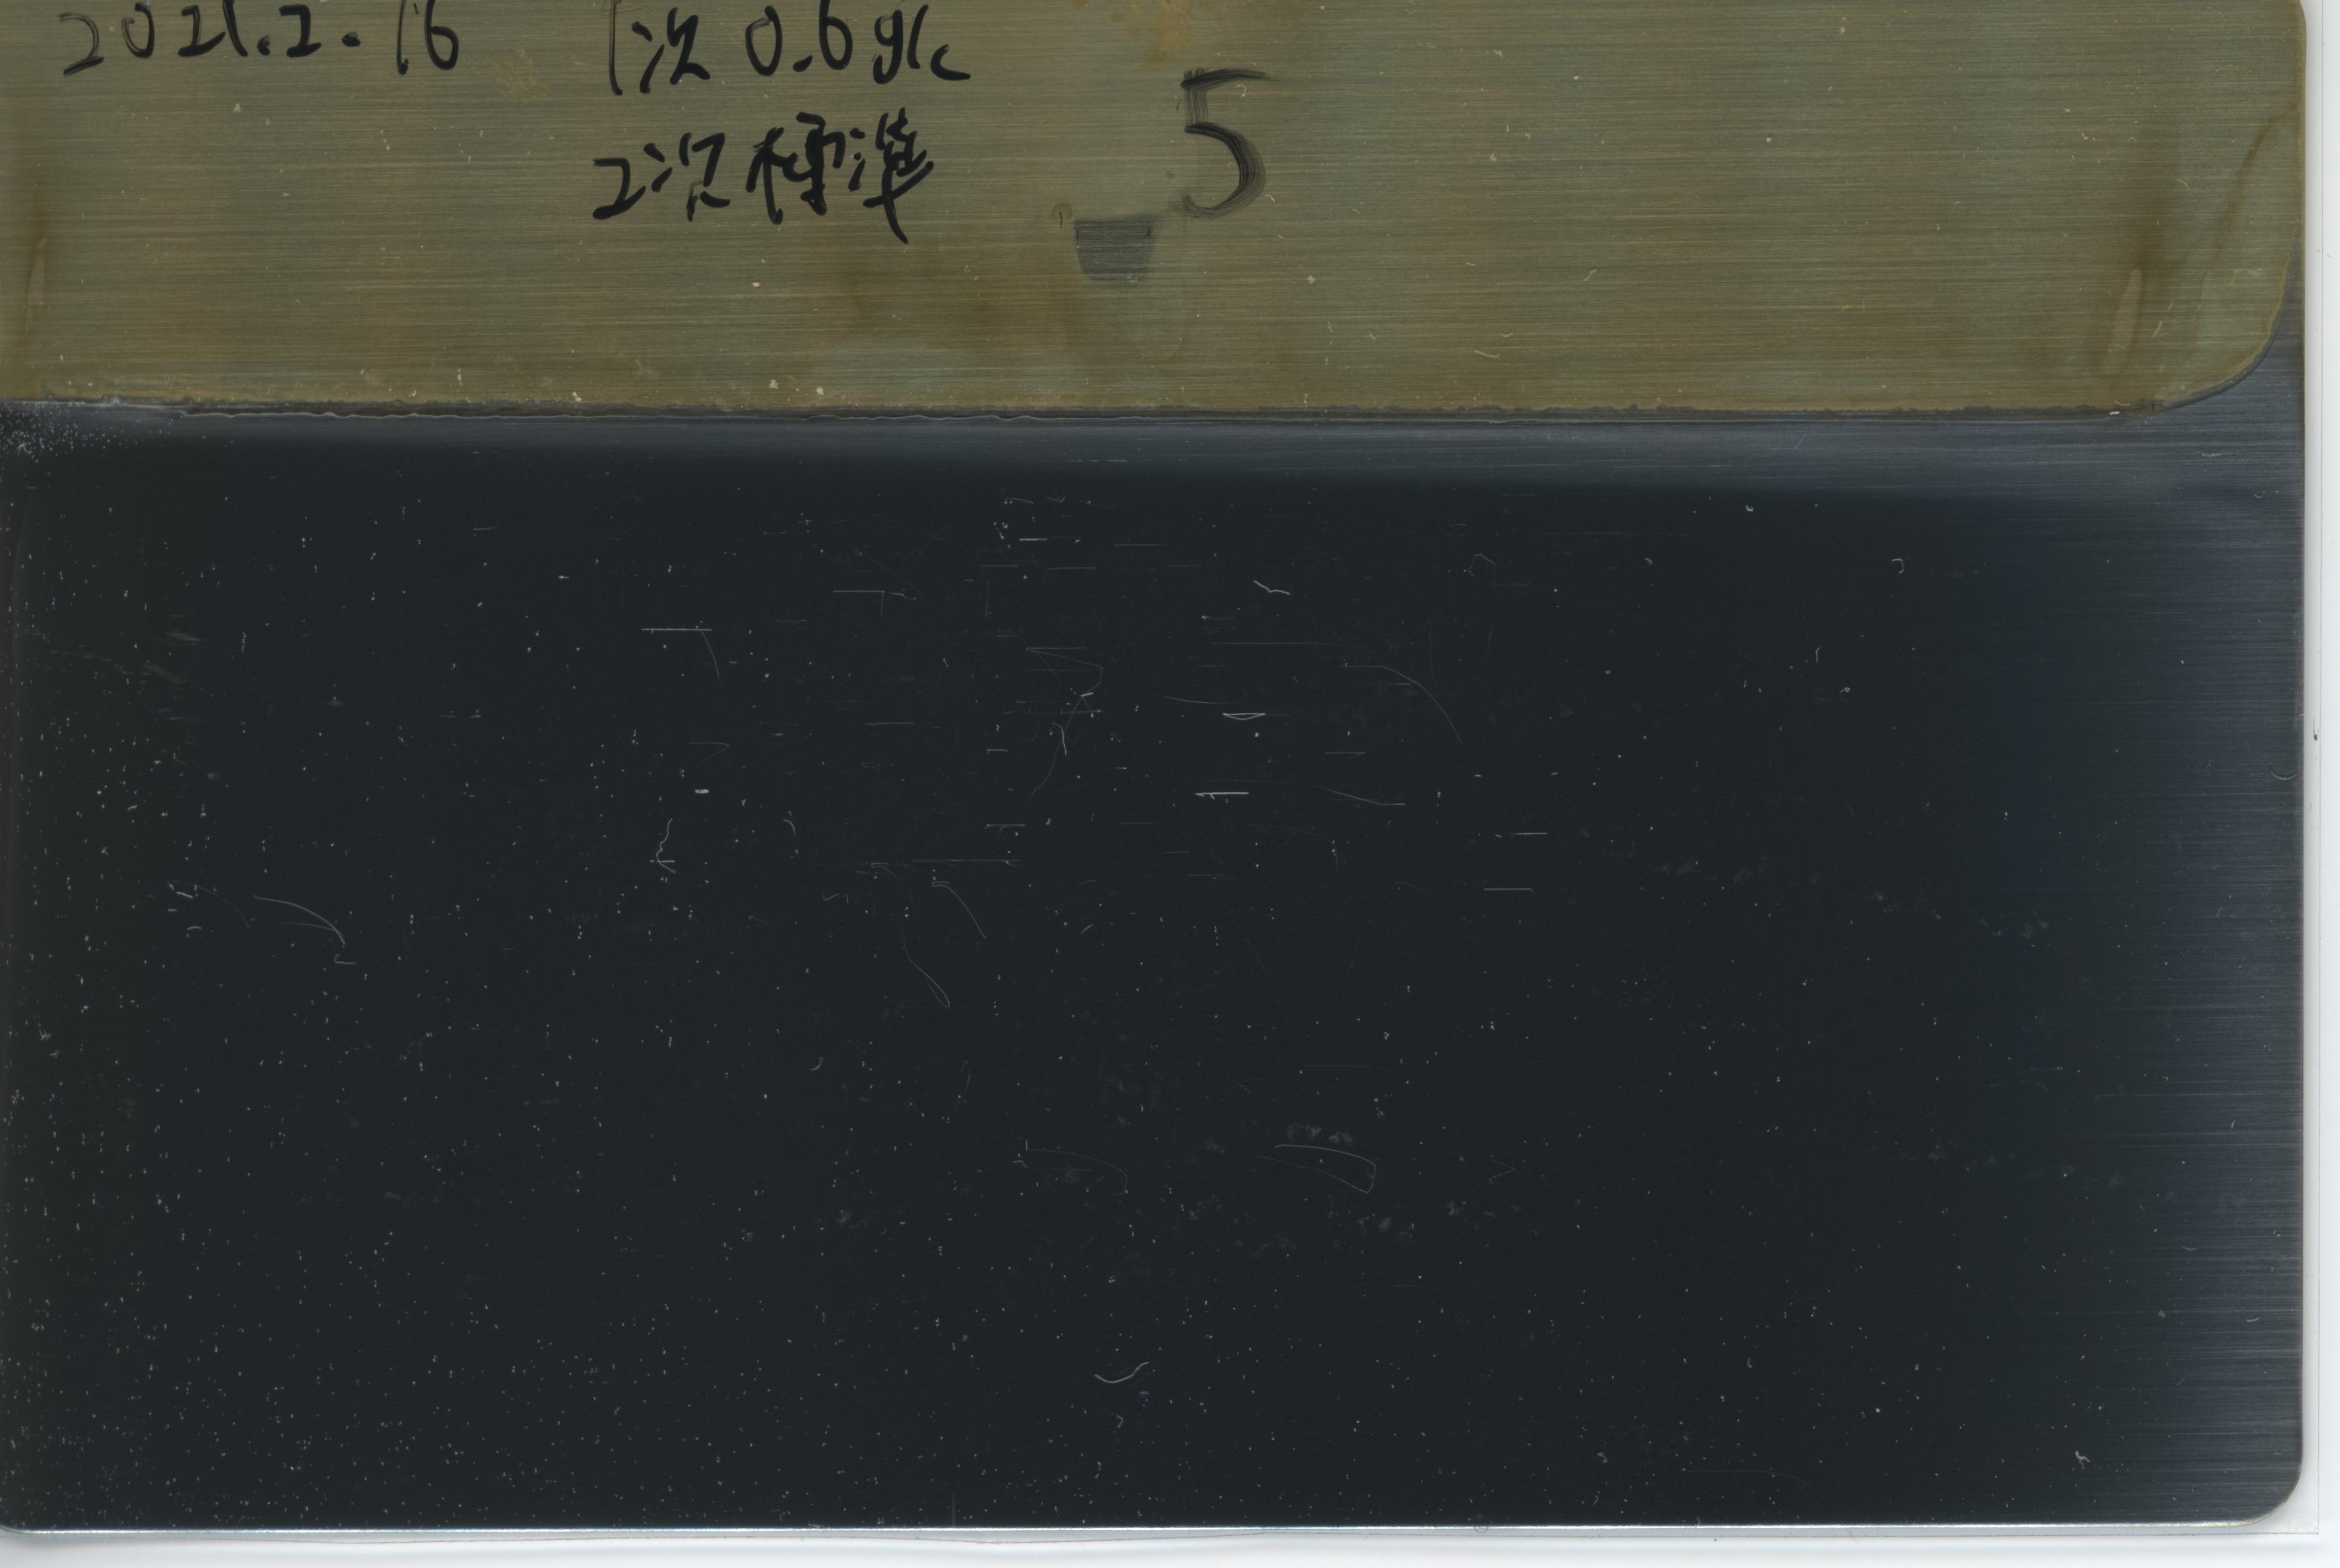 2021.2.16 1次 0.6g/L
2次標準
5